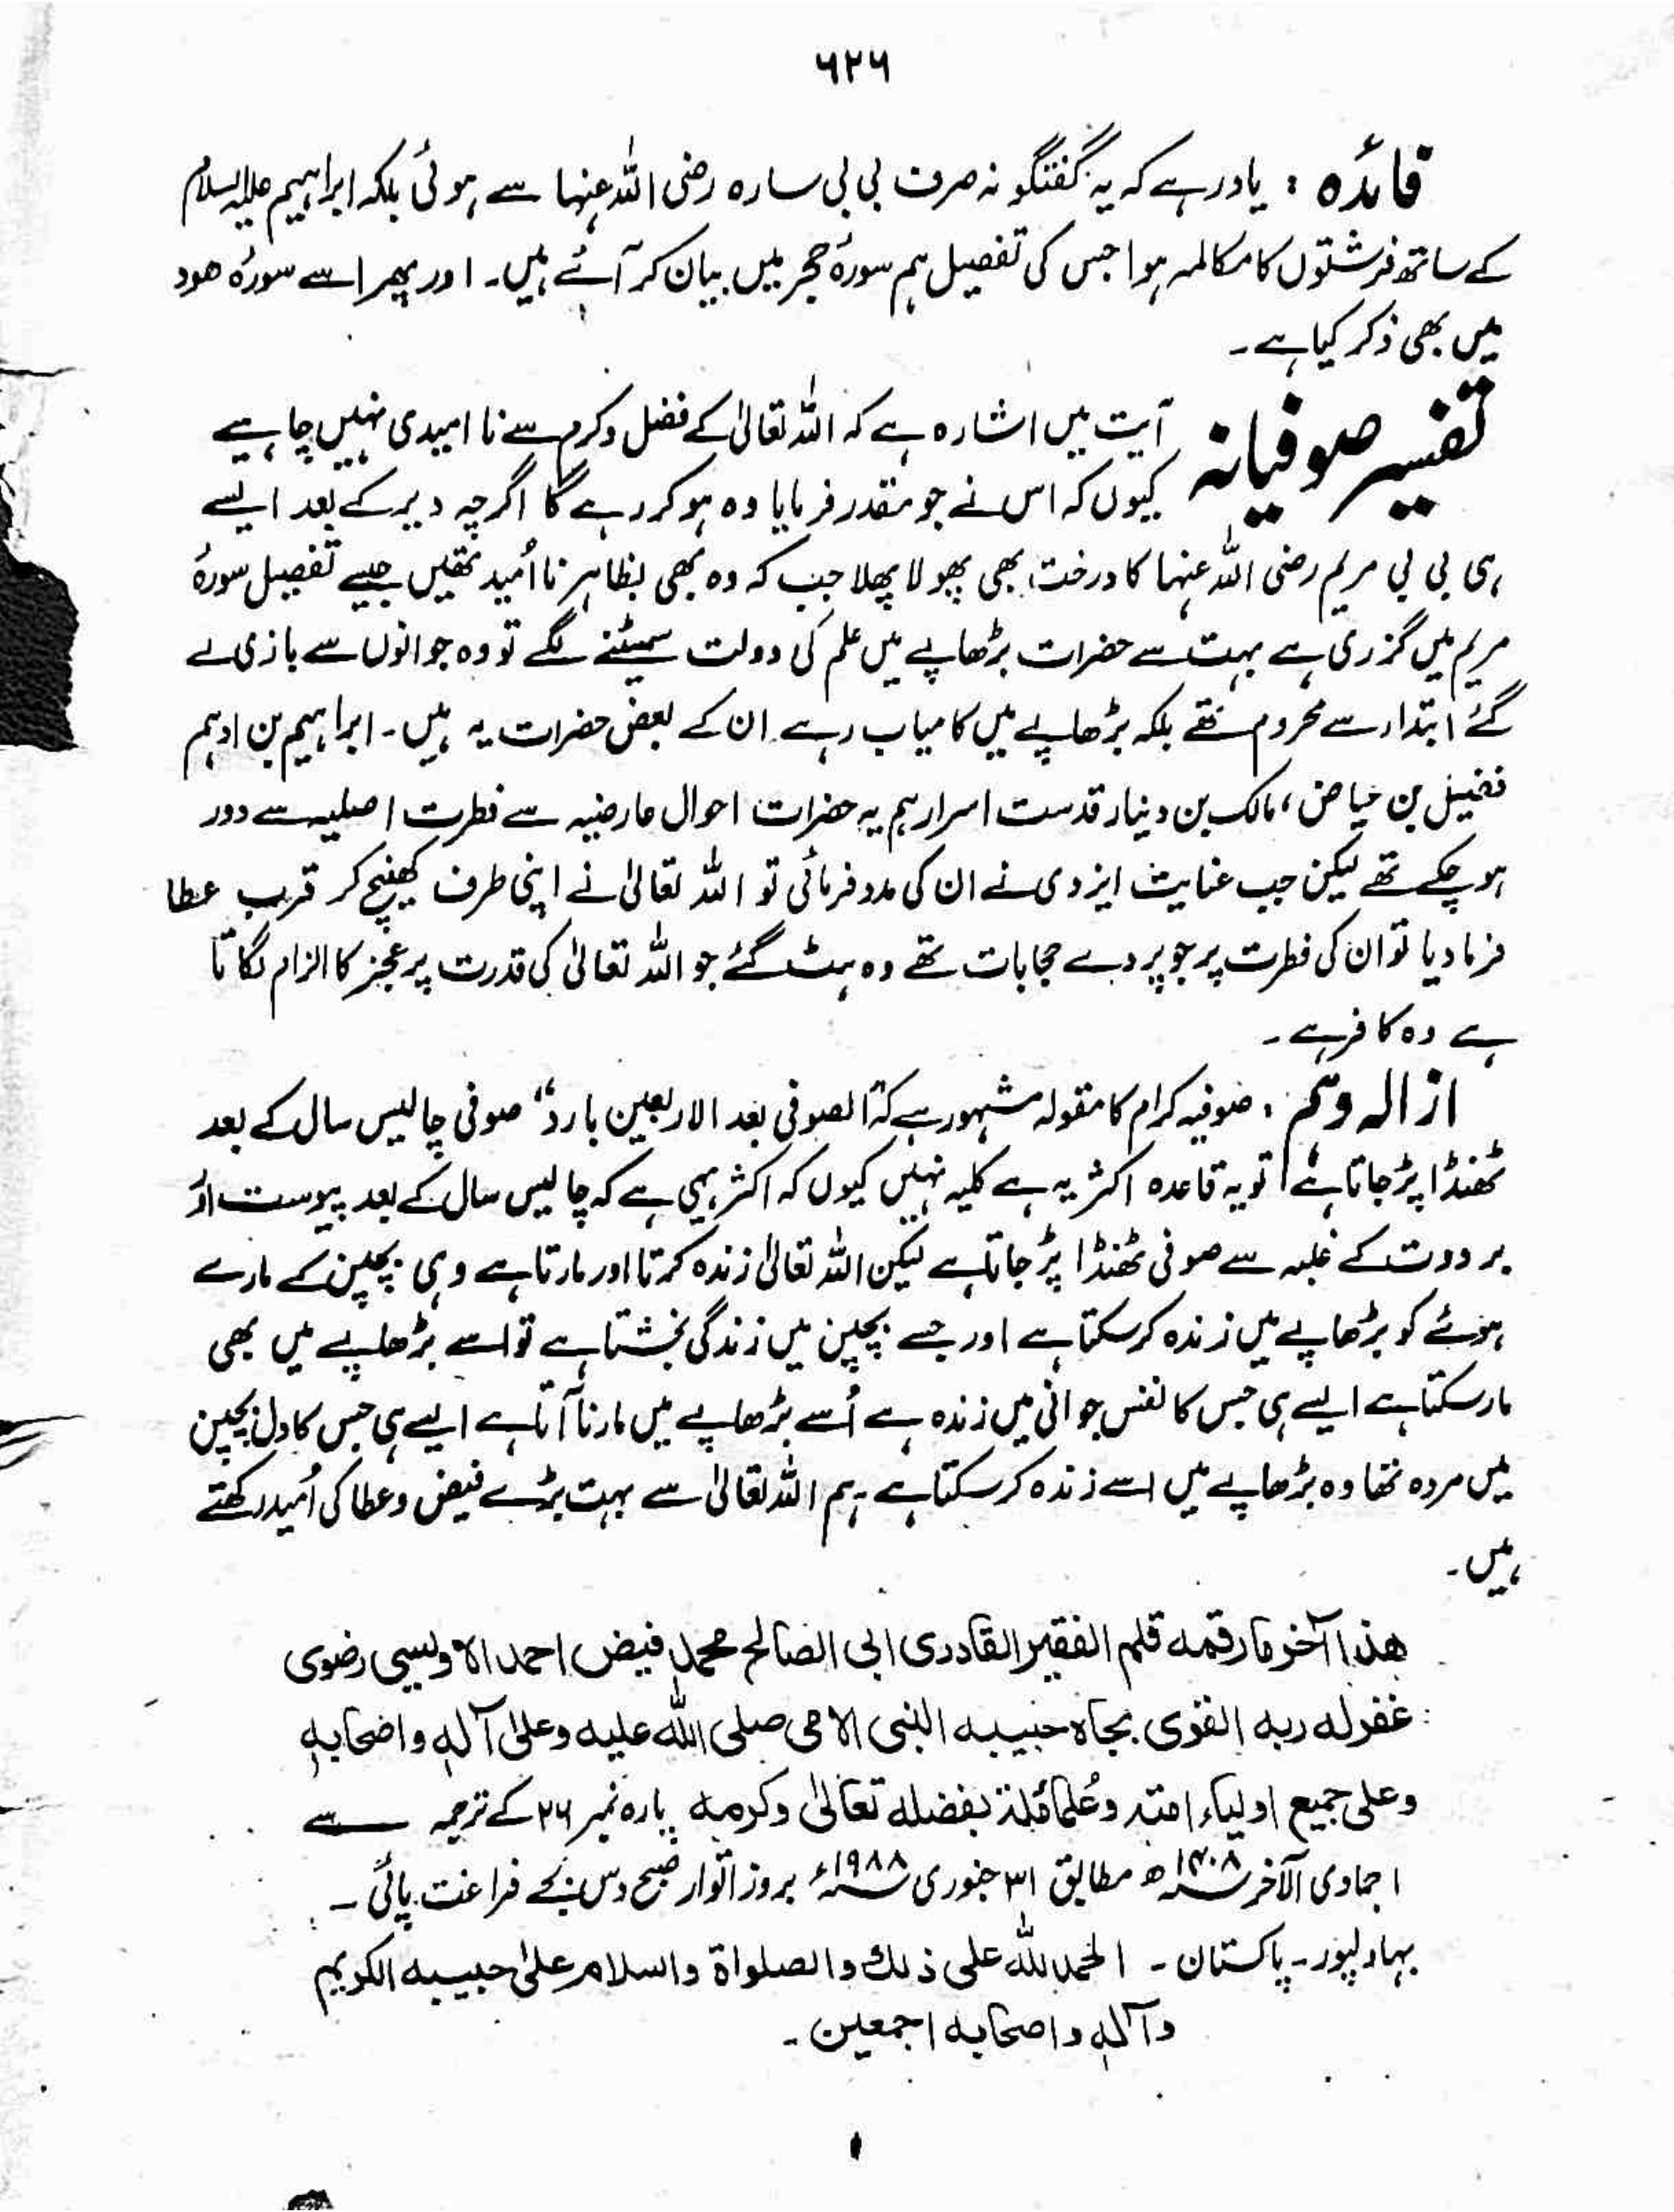 ۶۲۶
فائدہ : یاد رہے کہ یہ گفتگو نہ صرف بی بی سارہ رضی اللہ عنہا سے ہوئی بلکہ ابراہیم علیہ السلام
کے ساتھ فرشتوں کا مکالمہ ہوا جس کی تفصیل ہم سورۂ حجر میں بیان کر آئے ہیں۔ اور پھر اسے سورۂ ھود
میں بھی ذکر کیا ہے۔
تفسیر صوفیانہ آیت میں اشارہ ہے کہ اللہ تعالیٰ کے فضل و کرم سے نا امیدی نہیں چاہیے
کیوں کہ اس نے جو مقدر فرمایا وہ ہو کر رہے گا اگرچہ دیر کے بعد ایسے
ہی بی بی مریم رضی اللہ عنہا کا درخت بھی پھولا پھلا جب کہ وہ بھی بظاہر نا اُمید تھیں جیسے تفصیل سورۂ
مریم میں گزری ہے بہت سے حضرات بڑھاپے میں علم کی دولت سمیٹنے لگے تو وہ جوانوں سے بازی لے
گئے ابتدار سے محروم تھے بلکہ بڑھاپے میں کامیاب رہے ان کے بعض حضرات یہ ہیں۔ ابراہیم بن ادہم
فضیل بن عیاض ، مالک بن دینار قدست اسرارہم یہ حضرات احوال عارضیہ سے فطرت اصلیہ سے دور
ہو چکے تھے لیکن جب عنایت ایزدی نے ان کی مدد فرمائی تو اللہ تعالیٰ نے اپنی طرف کھینچ کر قرب عطا
فرما دیا تو ان کی فطرت پر جو پردے حجابات تھے وہ ہٹ گئے جو اللہ تعالیٰ کی قدرت پر عجز کا الزام لگاتا
ہے وہ کافر ہے۔
ازالہ وہم : صوفیہ کرام کا مقولہ مشہور ہے کہ "الصوفی بعد الاربعین بارد" صوفی چالیس سال کے بعد
ٹھنڈا پڑ جاتا ہے تو یہ قاعدہ اکثریہ ہے کلیہ نہیں کیوں کہ اکثر یہی ہے کہ چالیس سال کے بعد یبوست اور
بردوت کے غلبہ سے صوفی ٹھنڈا پڑ جاتا ہے لیکن اللہ تعالیٰ زندہ کرتا اور مارتا ہے وہی بچپن کے مارے
ہوئے کو بڑھاپے میں زندہ کر سکتا ہے اور جسے بچپن میں زندگی بخشتا ہے تو اسے بڑھاپے میں بھی
مار سکتا ہے ایسے ہی جس کا نفس جوانی میں زندہ ہے اُسے بڑھاپے میں مارنا آتا ہے ایسے ہی جس کا دل بچپن
میں مردہ تھا وہ بڑھاپے میں اسے زندہ کر سکتا ہے ہم اللہ تعالیٰ سے بہت بڑے فیض و عطا کی اُمید رکھتے
ہیں۔
ھذا آخر ما رقمه قلم الفقیر القادری ابی الصالح محمد فیض احمد الاویسی رضوی
غفرله ربه القوی بجاہ حبیبه النبی الامی صلی اللہ علیه وعلیٰ آله واصحابه
وعلی جمیع اولیاء امته وعُلماءملة بفضله تعالیٰ وکرمه پارہ نمبر ۲۶ کے ترجمہ سے
۱ جمادی الآخر ۱۴۰۸ھ مطابق ۳۱ جنوری ۱۹۸۸ء بروز اتوار صبح دس بجے فراغت پائی۔
بہاولپور۔ پاکستان ۔ الحمد للہ علی ذلك والصلواة والسلام علیٰ حبیبه الکریم
وآله واصحابه اجمعین۔